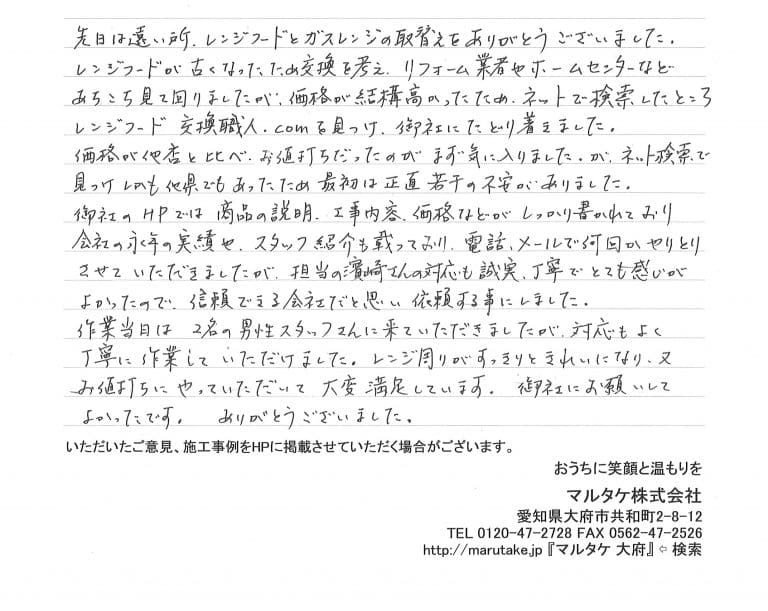 先日は遠い所、レンジフードとガスレンジの取替えをありがとうございました。
レンジフードが古くなったため交換を考え、リフォーム業者やホームセンターなど
あちこち見て回りましたが、価格が結構高かったため、ネットで検索したところ
レンジフード 交換職人.comを見つけ、御社にたどり着きました。
価格が他店と比べ、お値打ちだったのがまず気に入りました。が、ネット検索で
見つけしかも他県でもあったため最初は正直若干の不安がありました。
御社のHPでは商品の説明、工事内容、価格などがしっかり書かれており
会社の永年の実績や、スタッフ紹介も載っており、電話、メールで何回かやりとり
させていただきましたが、担当の濱崎さんの対応も誠実、丁寧でとても感じが
よかったので、信頼できる会社だと思い依頼する事にしました。
作業当日は 2名の男性スタッフさんに来ていただきましたが、対応もよく
丁寧に作業していただけました。レンジ周りがすっきりときれいになり、又
お値打ちにやっていただいて 大変満足しています。 御社にお願いして
よかったです。 ありがとうございました。
いただいたご意見、施工事例をHPに掲載させていただく場合がございます。
おうちに笑顔と温もりを
マルタケ株式会社
愛知県大府市共和町2-8-12
TEL 0120-47-2728 FAX 0562-47-2526
http://marutake.jp 『マルタケ 大府』⇦ 検索